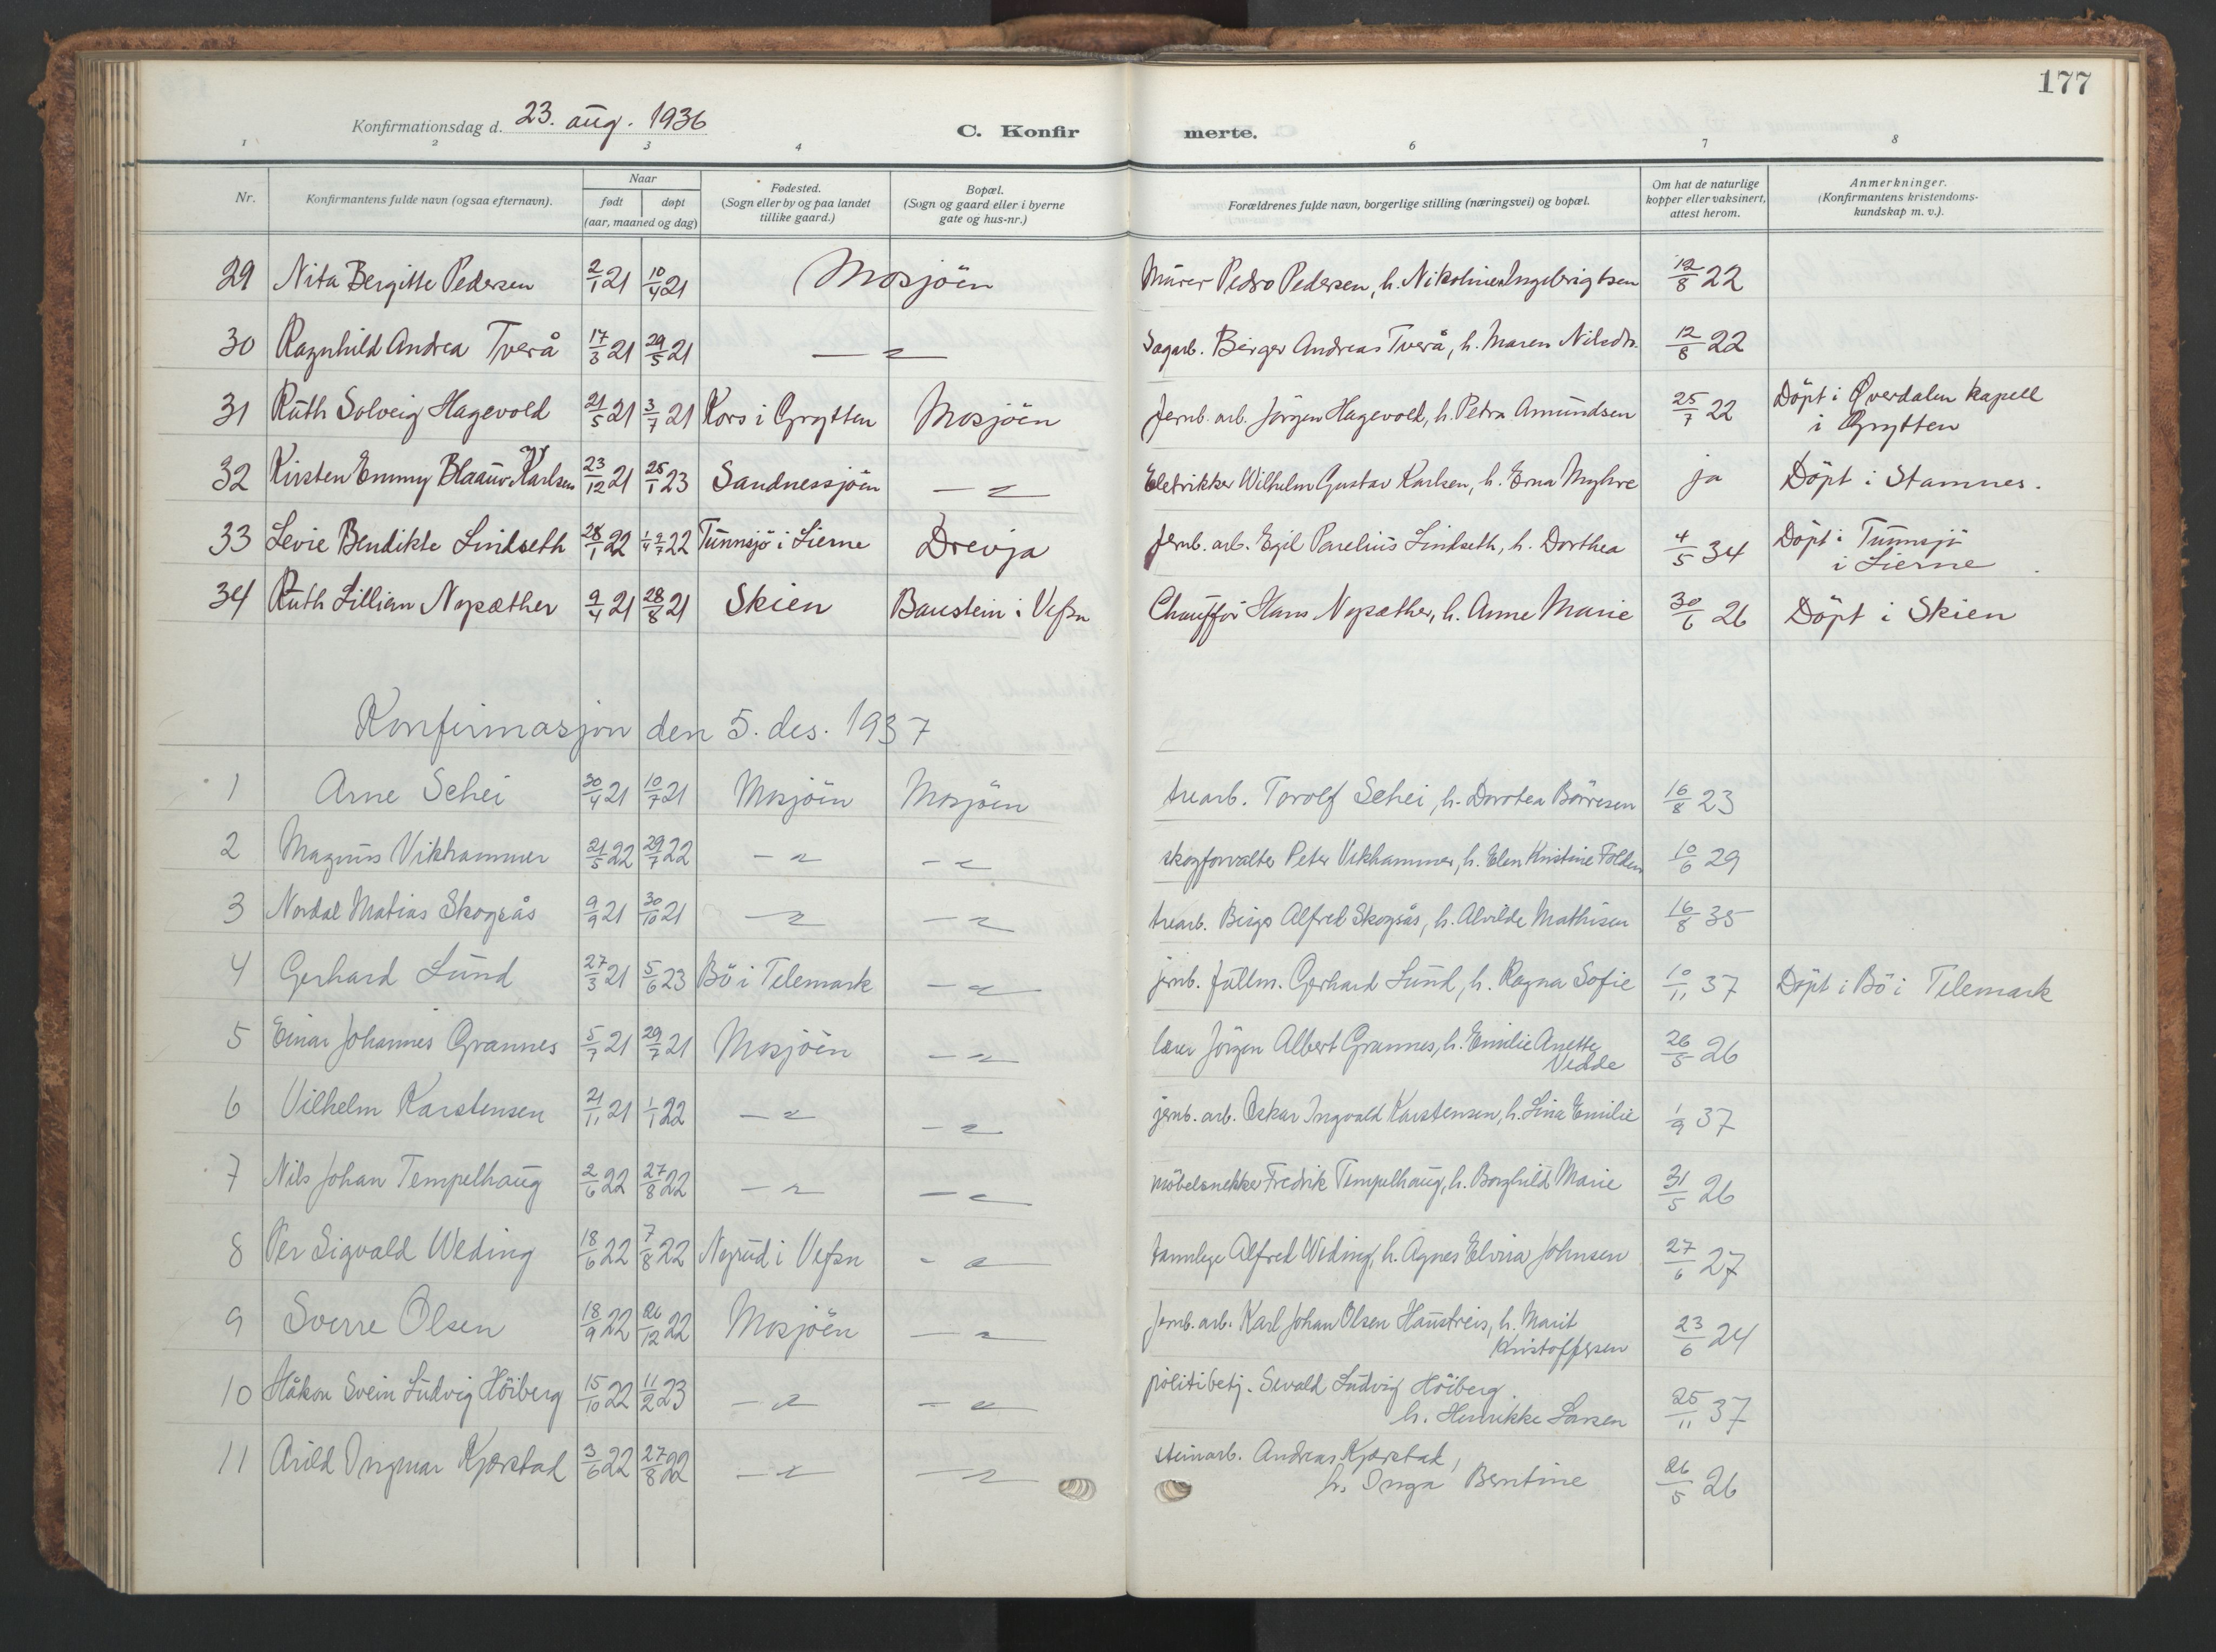 177
Konfirmationsdag d. 23. aug. 1936
C. Konfirmerte.
1 2 3 4 6 7 8
Nr.
Konfirmantens fulde navn (ogsaa efternavn).
Naar
født døpt
(aar, maaned og dag)
Fødested.
(Sogn eller by og paa landet
tillike gaard.)
Bopæl.
(Sogn og gaard eller i byerne
gate og hus-nr.)
Forældrenes fulde navn, borgerlige stilling (næringsvei) og bopæl.
Om hat de naturlige
kopper eller vaksinert,
attest herom.
Anmerkninger.
(Konfirmantens kristendoms-
kundskap m. v.).
29 Nita Bergitte Pedersen 2/1 21 10/4 21 Mosjöen Murer Pedro Pedersen, h. Nikoline Ingebrigtsen 12/8 22
30 Ragnhild Andrea Tverå 17/3 21 29/5 21 — " — Sagarb. Birger Andreas Tverå, h. Maren Nilsdtr. 12/8 22
31 Ruth Solveig Hagevold 21/5 21 3/7 21 Kors i Grytten Mosjöen Jernb. arb. Jörgen Hagevold, h. Petra Amundsen 25/7 22 Döpt i Øverdalen kapell
i Grytten
32 Kirsten Emmy Blaauv Karlsen 23/12 21 25/1 23 Sandnessjöen — " — Eletrikker Wilhelm Gustav Karlsen, h. Erna Myhre ja Döpt i Stamnes.
33 Levie Bendikte Lindseth 28/1 22 22 Tunnsjö i Lierne Drevja Jernb. arb. Egil Parelius Lindseth, h. Dorthea 4/5 34 Döpt i Tunnsjö
i Lierne
34 Ruth Lillian Nypæther 9/4 21 28/8 21 Skien Baustein i Vefsn Chaufför Hans Nypæther, h. Anne Marie 30/6 26 Döpt i Skien
Konfirmasjon den 5. des. 1937
1 Arne Schei 30/4 21 10/7 21 Mosjöen Mosjöen trearb. Torolf Schei, h. Dorotea Börresen 16/8 23
2 Magnus Vikhammer 21/5 22 29/7 22 — " — — " — skogforvalter Peter Vikhammer, h. Elen Kristine Folden 10/6 29
3 Nordal Matias Skogsås 9/9 21 30/10 21 — " — — " — trearb. Birger Alfred Skogsås, h. Alvilde Mathisen 16/8 35
4 Gerhard Lund 27/3 21 5/6 23 Bö i Telemark — " — jernb. fullm. Gerhard Lund, h. Ragna Sofie 10/11 37 Döpt i Bö i Telemark
5 Einar Johannes Grannes 5/7 21 29/7 21 Mosjöen — " — lærer Jörgen Albert Grannes, h. Emilie Anette
Vedde 26/5 26
6 Vilhelm Karstensen 21/11 21 1/1 22 — " — — " — jernb. arb. Oskar Ingvald Karstensen, h. Lina Emilie 1/9 37
7 Nils Johan Tempelhaug 2/6 22 27/8 22 — " — — " — möbelsnekker Fredrik Tempelhaug, h. Borghild Marie 31/5 26
8 Per Sigvald Weding 18/6 22 7/8 22 Nyrud i Vefsn — " — tannlege Alfred Weding, h. Agnes Elvira Johnsen 27/6 27
9 Sverre Olsen 18/9 22 26/12 22 Mosjöen — " — Jernb. arb. Karl Johan Olsen Haustreis, h. Marit
Kristoffersen 23/6 24
10 Håkon Svein Ludvig Höiberg 15/10 22 11/2 23 — " — — " — politibetj. Sevald Ludvig Höiberg
h. Henrikke Larsen 25/11 37
11 Arild Ingmar Kjærstad 3/6 22 27/8 22 — " — — " — steinarb. Andreas Kjærstad,
h. Inga Berntine 26/5 26